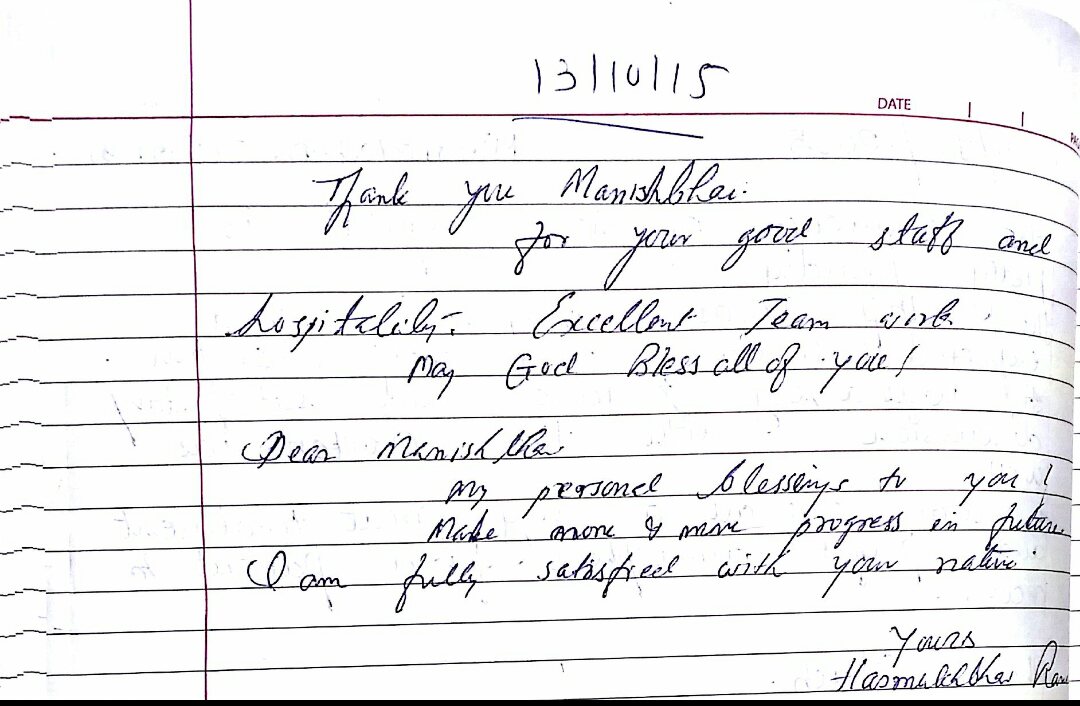 13/10/15
DATE
Thank you Manishbhai.
for your good staff and
hospitality. Excellent Team work.
May God Bless all of you!
Dear Manishbhai
My personel blessings to you!
Make more & more progress in future
I am fully satisfied with your native
Yours
Hasmukhbhai